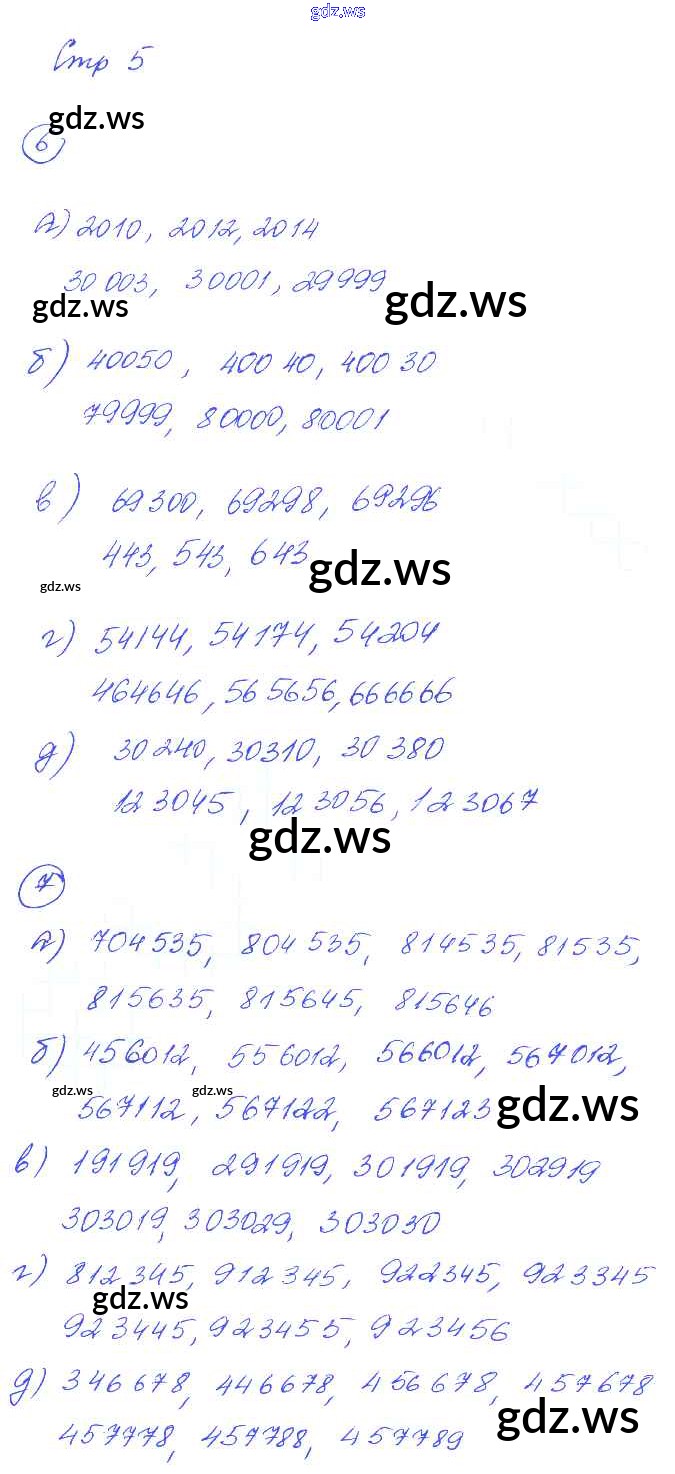 gdz.ws
Стр 5
gdz.ws
6
А) 2010, 2012, 2014
30 003, 30001, 29999
gdz.ws gdz.ws
б) 40050, 400 40, 400 30
79999, 80000, 80001
в) 69 300, 69298, 69296
443, 543, 643
gdz.ws gdz.ws
г) 54144, 54 174, 54204
464646, 565656, 666666
д) 30 240, 30310, 30 380
123045, 123056, 123067
gdz.ws
7
А) 704 535, 804 535, 814535, 81535,
815635, 815645, 815646
б) 456012, 556012, 566012, 567012,
gdz.ws gdz.ws gdz.ws
567112, 567122, 567123
в) 191919, 291919, 301919, 302919
303019, 303029, 303030
г) 812 345, 912 345, 922345, 923345
gdz.ws
923445, 923455, 923456
д) 346 678, 446678, 456 678, 457678
457778, 457788, 457789
gdz.ws